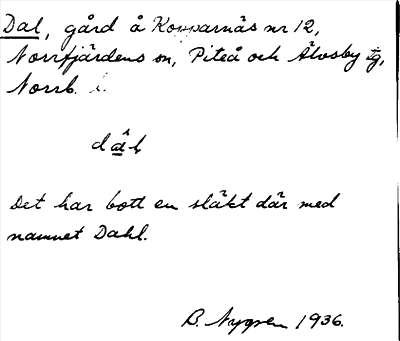 Dal, gård å Kopparnäs nr 12,
Norrfjärdens sn, Piteå och Älvsby tg,
Norrb. l.
Det har bott en släkt där med
namnet Dahl.
B. Nygren 1936.